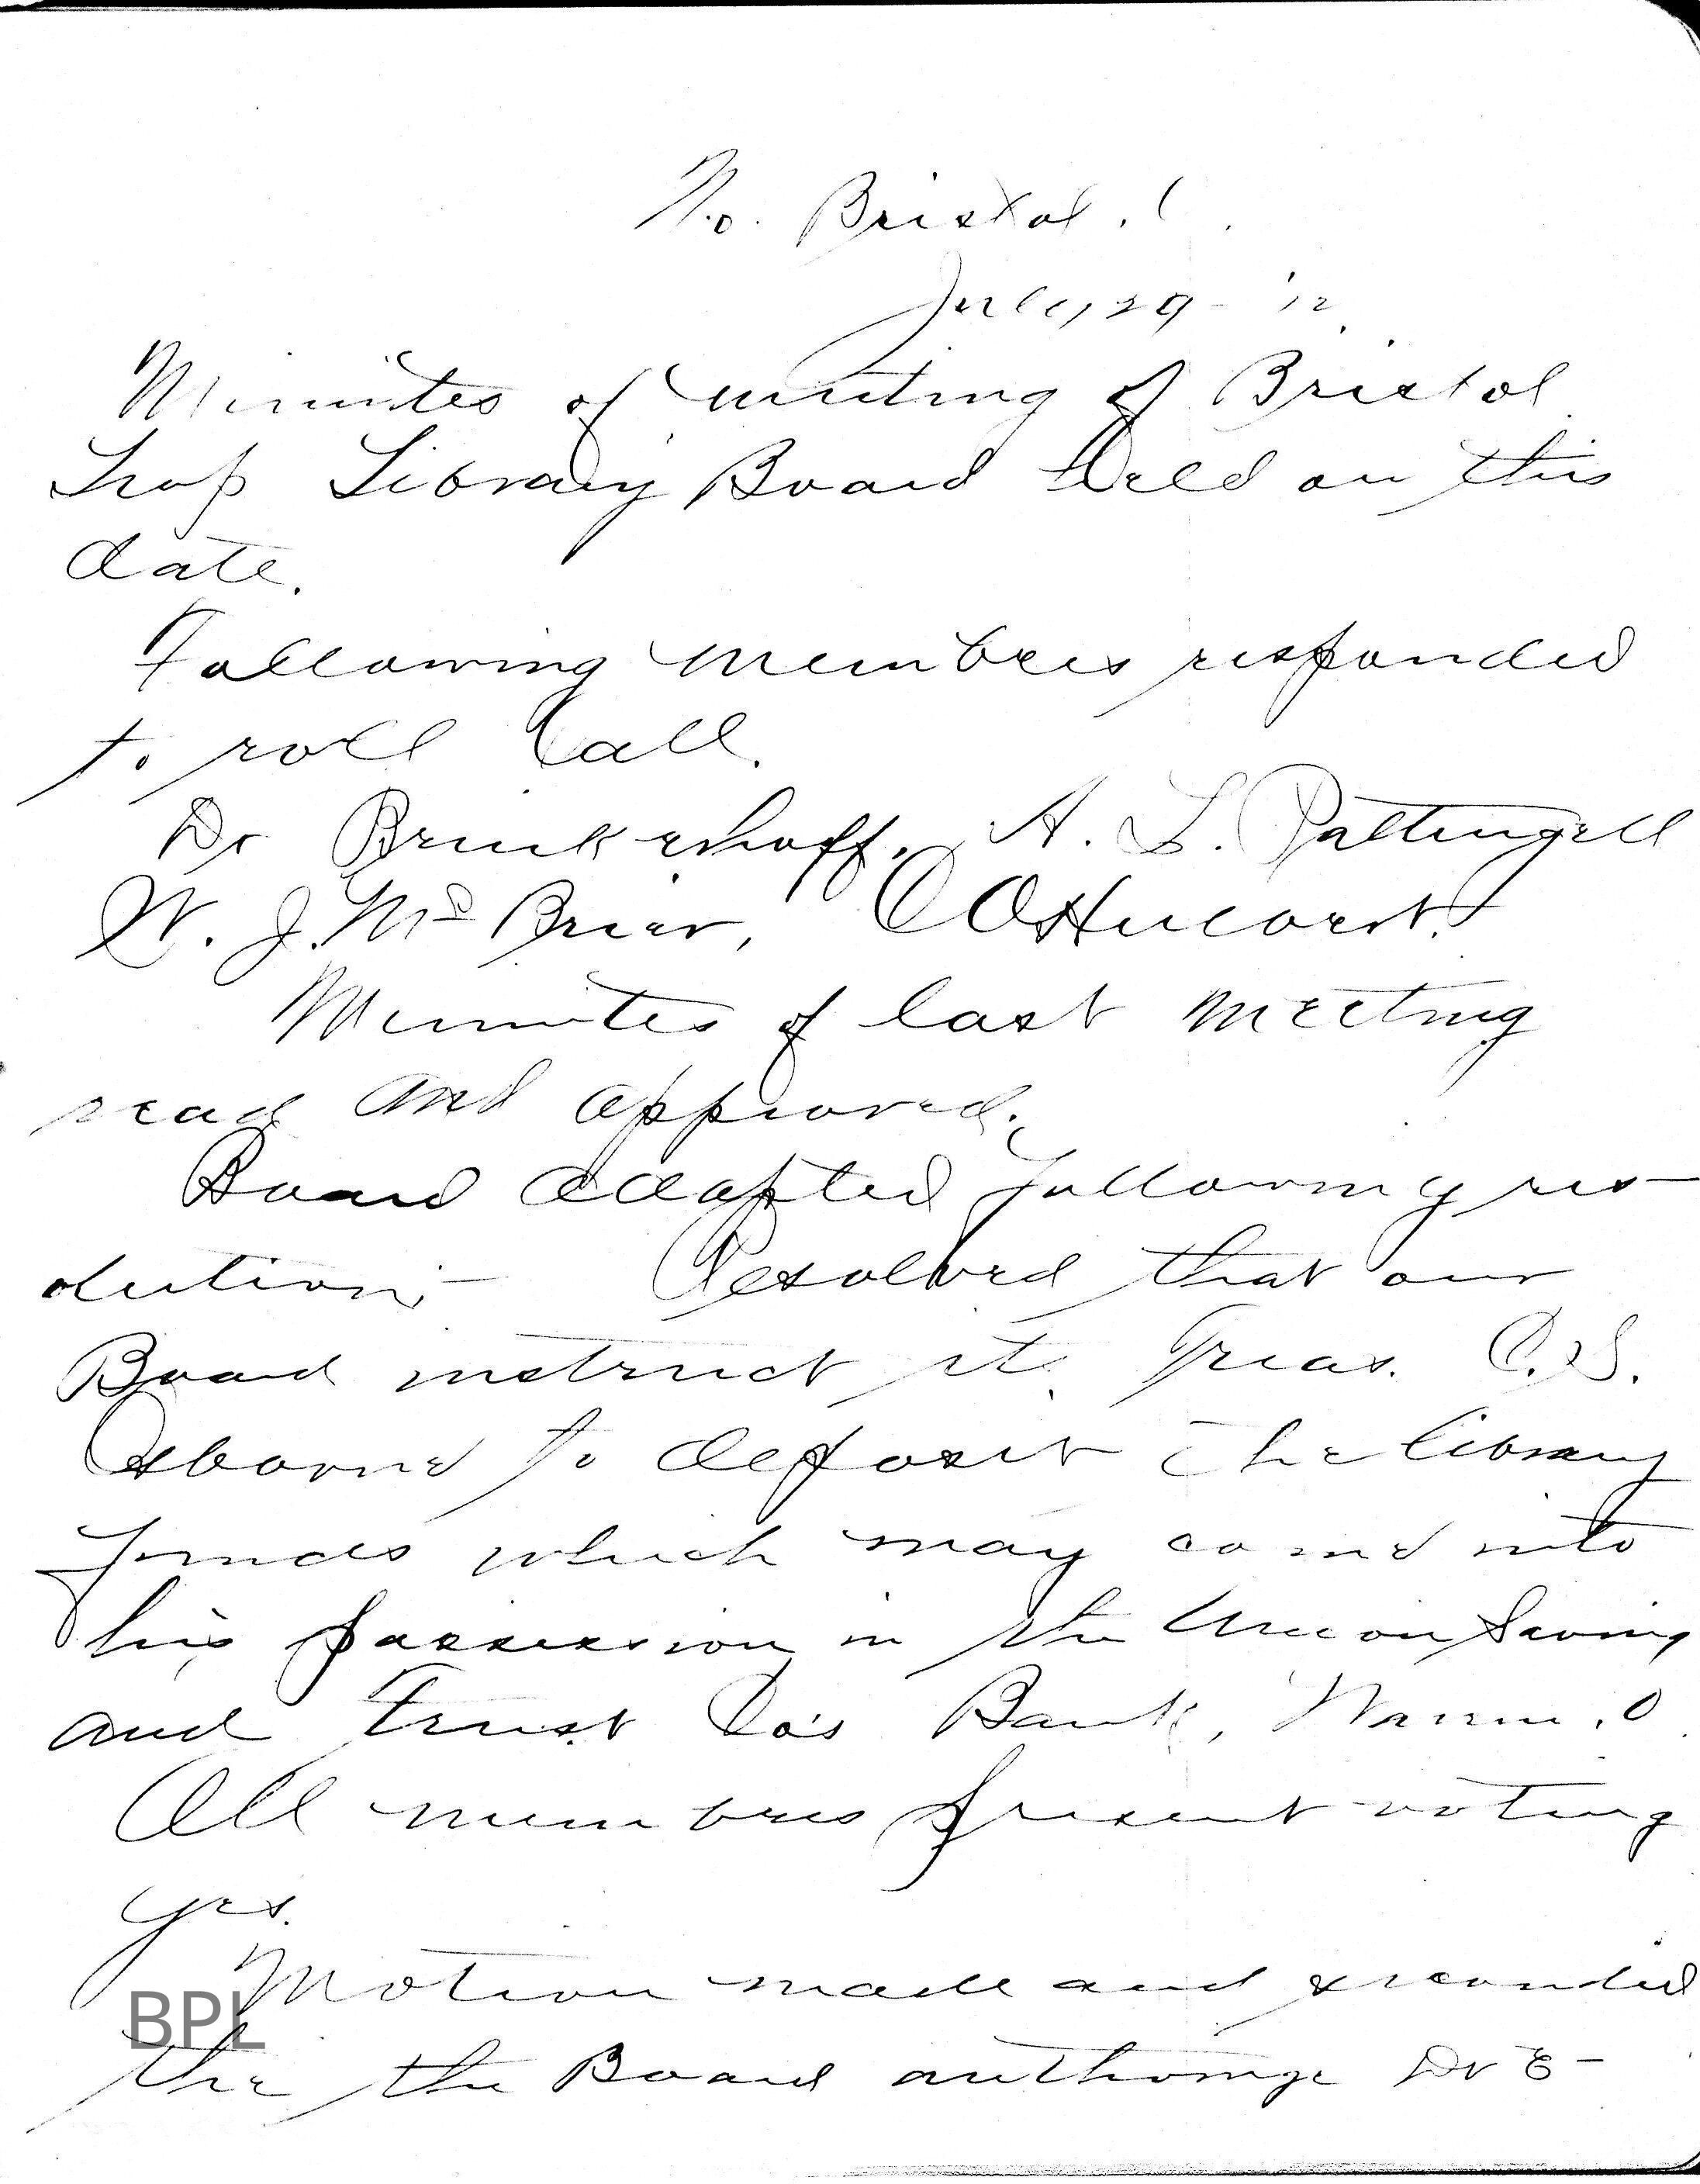 No. Bristol. O.
July 29 - '12.
Minutes of meeting of Bristol
Twp Library Board held on this
date.
Following members responded
to roll call.
Dr Brinkerhoff. A. L. Pattengell
W. J. McBriar,
Minutes of last meeting
read and approved.
Board adopted following res-
olution;- Resolved that our
Board instruct its Treas. C. S.
Osborne to deposit the library
funds which may come into
his possession in the Union Saving
and Trust Co's Bank, Warren. O.
All members present voting
yes.
Motion made and seconded
the the Board authorize Dr E-
BPL